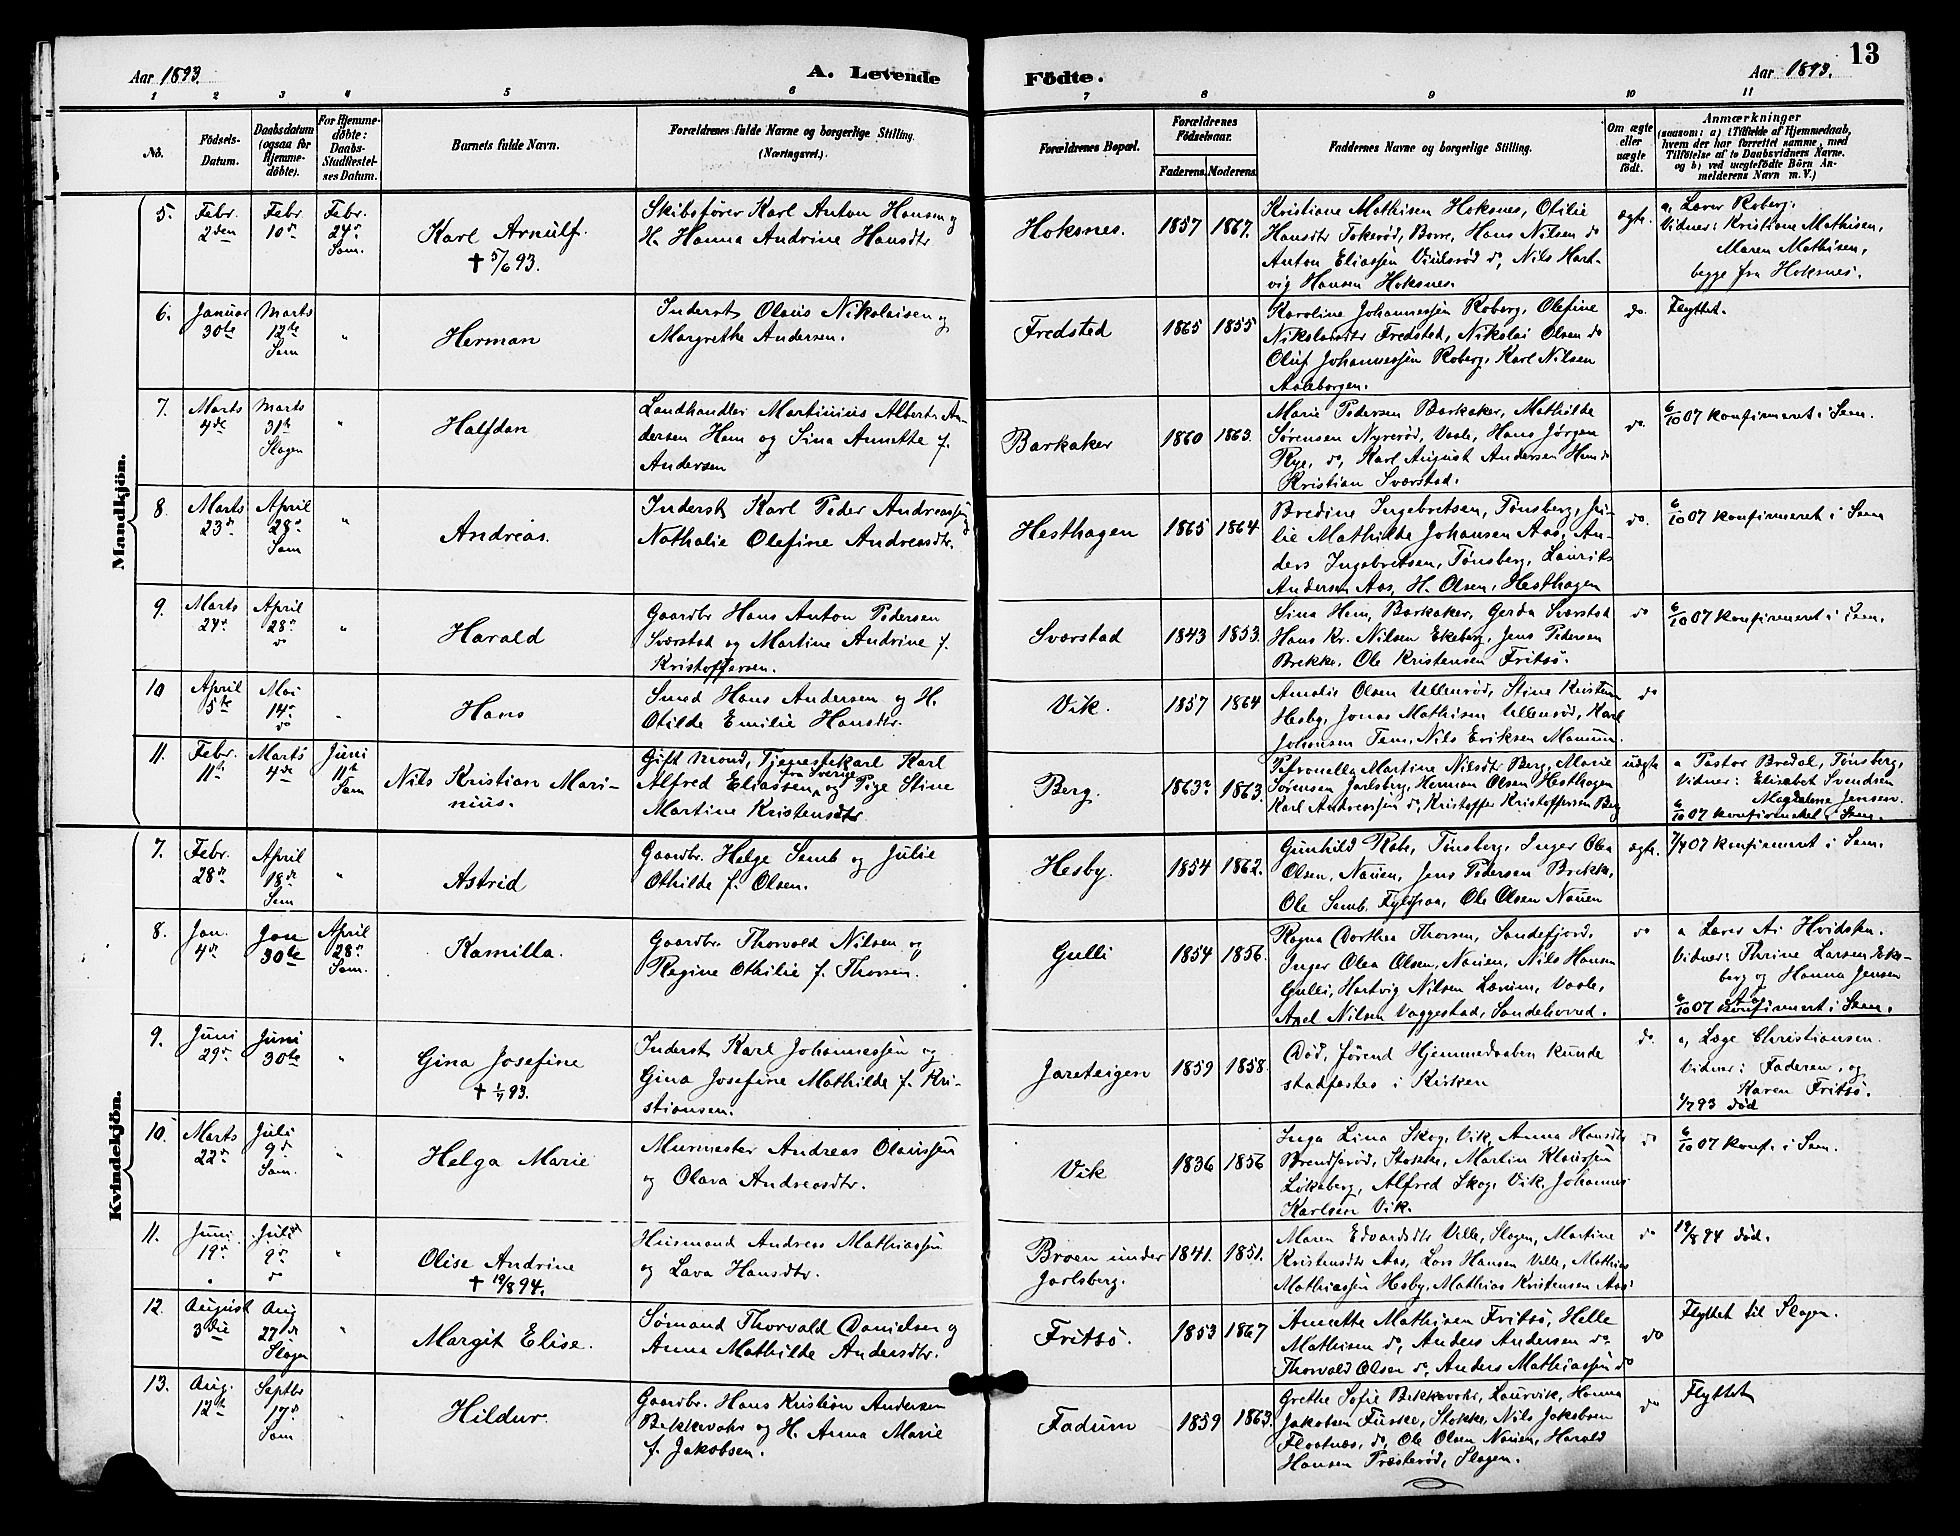 Aar 1893.
A. Levende
Fødte.
Aar 1893.
13
1 2 3 4 5 6 7 8 9 10 11
No.
Fødsels-
Datum.
Daabsdatum
(ogsaa for
Hjemme-
døbte).
For Hjemme-
døbte:
Daabs-
Stadfæstel-
ses Datum.
Barnets fulde Navn.
Forældrenes fulde Navne og borgerlige Stilling.
(Næringsvei.)
Forældrenes Bopæl.
Forældrenes
Fødselsaar.
Faderens. Moderens.
Faddernes Navne og borgerlige Stilling.
Om ægte
eller
uægte
født.
Anmærkninger
(saasom: a) i Tilfælde af Hjemmedaab,
hvem der har forrettet samme, med
Tilføielse af to Daabsvidners Navne.
og b) ved uægtefødte Børn An-
melderens Navn m. V.)
Mandkjøn.
5.
Febr.
2den
Febr.
10de
Febr.
24de
Sem.
Karl Arnulf.
† 5/6 93.
Skibsfører Karl Anton Hansen og
H. Hanna Andrine Hansdtr
Hoksnes.
1857
1867.
Kristiane Mathisen Hoksnes, Otilie
Hansdtr Tokerød, Borre, Hans Nilsen do
Anton Eliassen Viulsrød do, Nils Hart-
vig Hansen Hoksnes.
ægte.
a, Lærer Roberg.
Vidner: Kristiane Mathisen,
Maren Mathisen,
begge fra Hoksnes.
6.
Januar
30te
Marts
12te
Sem
"
Herman
Inderst Olaus Nikolaisen og
Margrethe Andersen.
Fredsted
1865
1855
Karoline Johannessen Roberg, Olefine
Nikolaisdtr Fredsted, Nikolai Olsen do
Oluf Johannessen Roberg, Karl Nilsen
Aaleborgen.
do.
Flyttet.
7.
Marts
4de
Marts
31te
Slagen
"
Halfdan
Landhandler Martinius Albert An-
dersen Hem og Sina Annette f.
Andersen
Barkaker
1860
1863.
Marie Pedersen Barkaker, Mathilde
Sørensen Nyrerød, Vaale, Hans Jørgen
Rye, do, Karl August Andersen Hem do
Kristian Sværstad.
do
6/10 07 konfirmeret i Sem.
8.
Marts
23de
April
28de
Sem
"
Andreas.
Inderst Karl Peder Andreassen og
Nathalie Olefine Andreasdtr.
Hesthagen
1865
1864
Bredine Ingebretsen, Tønsberg, Ju-
lie Mathilde Johansen Aas, An-
ders Ingebretsen, Tønsberg, Laurits
Andersen Aas, H. Olsen, Hesthagen
do.
6/10 07 konfirmeret i Sem
9.
Marts
24de
April
28de
do
"
Harald
Gaardbr Hans Anton Pedersen
Sværstad og Martine Andrine f.
Kristoffersen.
Sværstad
1843
1853.
Sina Hem, Barkaker, Gerda Sværstad
Hans Kr. Nilsen Ekeberg, Jens Pedersen
Brekke, Ole Kristensen Fritsø.
do
6/10 07 konfirmeret i Sem.
10
April
5te
Mai
14de
do
"
Hans
Smed Hans Andersen og H.
Otilde Emilie Hansdtr.
Vik.
1857
1864
Amalie Olsen Ullenrød, Stine Kristensen
Hesby, Jonas Mathisen Ullenrød, Karl
Johansen Tem, Nils Eriksen Manum.
do
11.
Febr.
11te
Marts
4de
Juni
11te
Sem
Nils Kristian Mari-
nius.
Gift Mand, Tjenestekarl Karl
Alfred Eliassen fra Sverige og Pige Stine
Martine Kristensdtr
Berg.
1863
1863.
Petronella Martine Nilsdtr Berg, Marie
Sørensen Jarlsberg, Herman Olsen Hesthagen
Karl Andreassen do, Kristoffer Kristoffersen Berg
uægte
a Pastor Bredal, Tønsberg,
Vidner: Elisabet Svendsen
Magdalene Jensen.
6/10 07 konfirmeret i Sem.
Kvindekjøn.
7.
Febr.
28de
April
18de
Sem
"
Astrid
Gaardbr. Helge Semb og Julie
Othilde f. Olsen.
Hesby.
1854
1862.
Gunhild Roh, Tønsberg, Inger Olea
Olsen, Nauen, Jens Pedersen Brekke,
Ole Semb, Fyldpaa, Ole Olsen Nauen
ægte.
7/4 07 konfirmeret i Sem.
8.
Jan.
4de
Jan
30te
April
28de
Sem.
Kamilla.
Gaardbr. Thorvald Nilsen og
Regine Othilie f. Thorsen.
Gulli
1854
1856.
Ragna Dorthea Thorsen, Sandefjord,
Inger Olea Olsen, Nauen, Nils Hansen
Gulli, Hartvig Nilsen Lærum, Vaale,
Axel Nilsen Vaggestad, Sandehered.
do
a Lærer A. Hvidsten.
Vidner: Thrine Larsen Eke-
berg og Hanna Jensen
6/10 07 konfirmeret i Sem.
9.
Juni
29de
Juni
30te
"
Gina Josefine
† 1/7 93.
Inderst Karl Johannessen og
Gina Josefine Mathilde f. Kri-
stiansen.
Jareteigen
1859
1858.
Død, førend Hjemmedaaben kunde
stadfæstes i Kirken
do.
a, Læge Christiansen.
Vidner: Faderen, og
Karen Fritsø.
1/7 93 død
10.
Marts
22de
Juli
9de
Sem.
"
Helga Marie
Murmester Andreas Olaussen
og Olava Andreasdtr.
Vik
1836
1856
Inga Lina Skog, Vik, Anna Hansdtr
Brendsrød, Stokke, Martin Klaussen
Løkeberg, Alfred Skog, Vik, Johannes
Karlsen Vik.
do
6/10 07 konf. i Sem.
11.
Juni
19de
Juli
9de
do
"
Olise Andrine
† 19/8 94.
Husmand Andreas Mathiassen
og Lava Hansdtr.
Broen under
Jarlsberg.
1841.
1851.
Maren Edvardsdtr Velle, Slagen, Martine
Kristensdtr Aas, Lars Hansen Velle, Mathias
Mathiassen Hesby, Mathias Kristensen Aas.
do
19/8 94 død.
12.
August
3die
Aug
27de
Slagen
"
Margit Elise.
Sømand Thorvald Danielsen og
Anna Mathilde Andersdtr.
Fritsø.
1853
1867
Annette Mathisen Fritsø, Helle
Mathisen do, Anders Andersen do.
Thorvald Olsen do, Anders Mathiassen do
do
Flyttet til Slagen.
13.
Aug.
12te
Septbr
17de
Sem
"
Hildur.
Gaardbr. Hans Kristian Andersen
Bekkevahr og H. Anna Marie
f. Jakobsen.
Fadum
1859
1863.
Grethe Sofie Bekkevahr, Laurvik, Hanna
Jakobsen Fuske, Stokke, Nils Jakobsen
Flaatnæs, do, Ole Olsen Nauen, Harald
Hansen Presterød, Slagen.
do
Flyttet